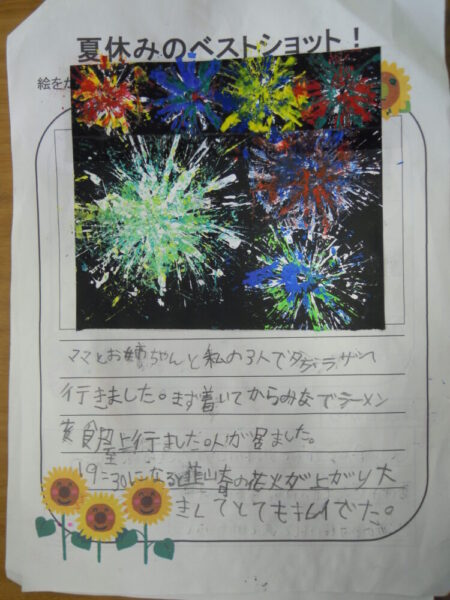 夏休みのベストショット！
絵をか
ママとお姉ちゃんと私の3人で
行きました。まず着いてからみなでラーメン
行ました。人が居ました。
19:30になると韮山 の花火が上がり大
きくてとてもキレイでた。